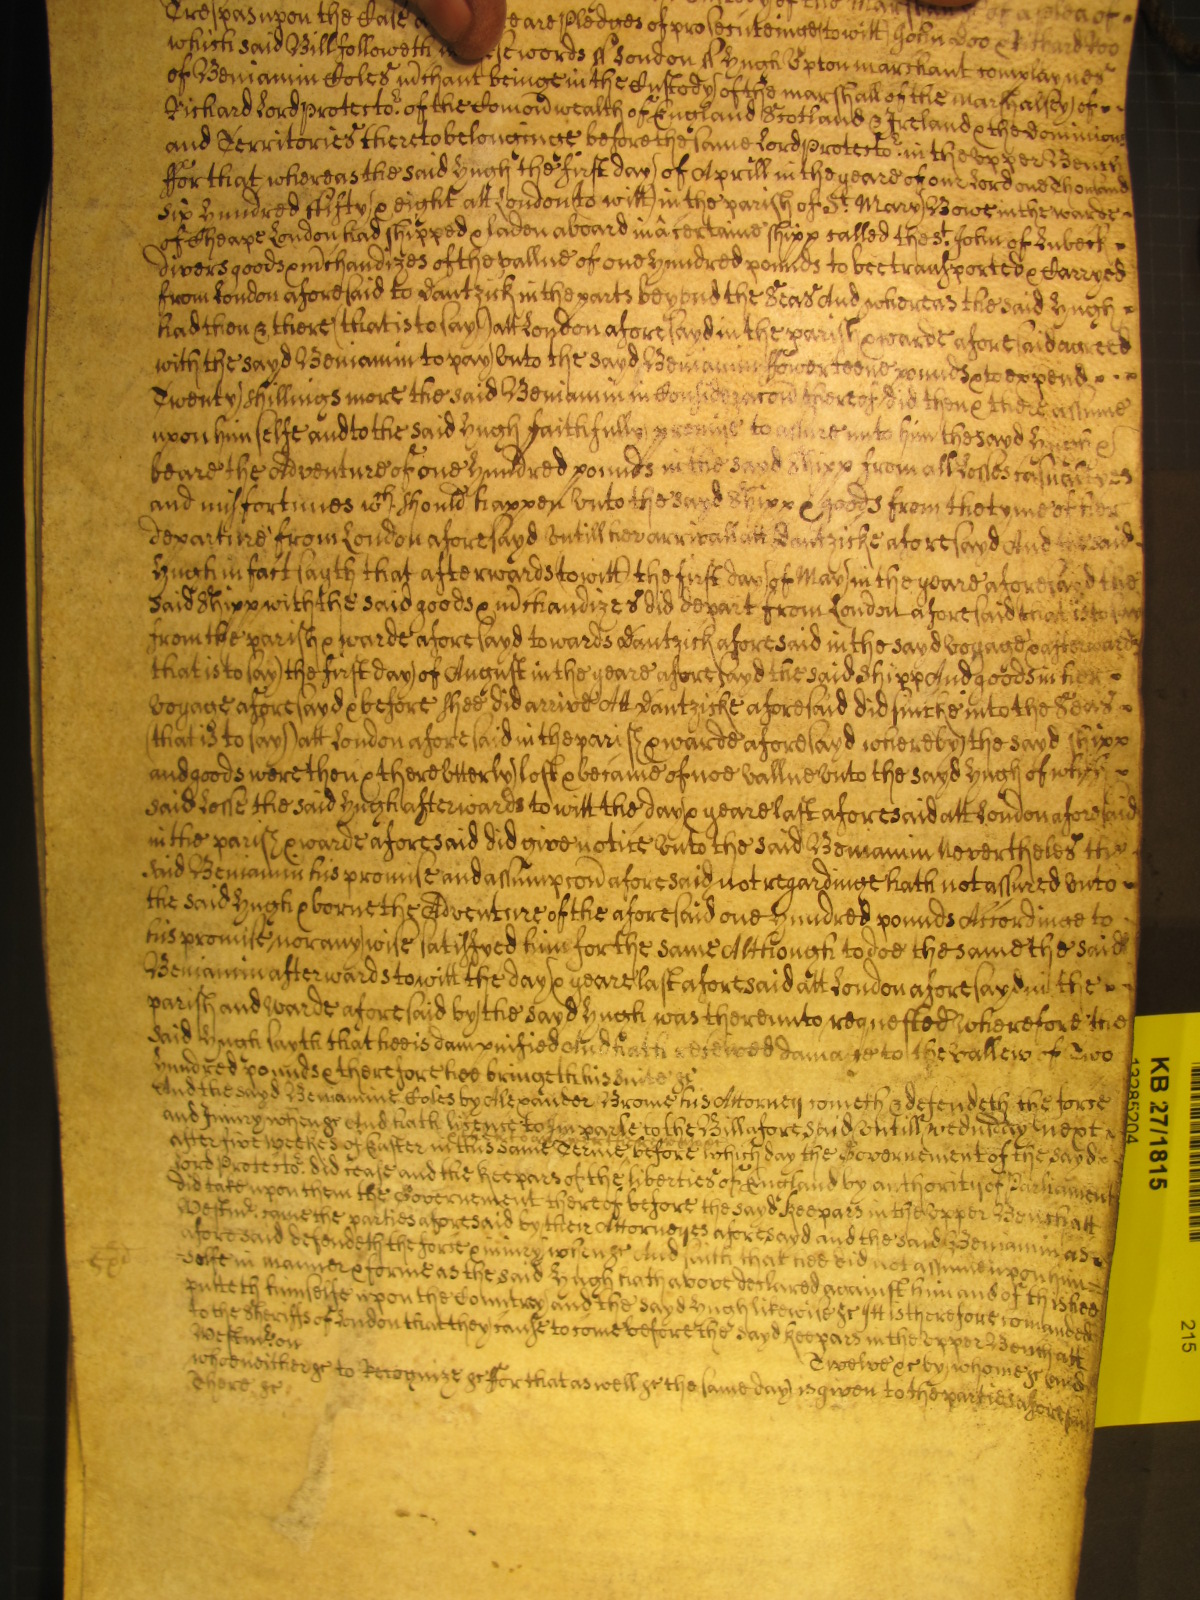 Trespas upon the Case are Pledges of prosecuteinge (to witt) John Doo & Richard Roo
which said Bill followeth in words ss London ss Hugh Upton marchant complaynes
of Beniamin Coles mchant beinge in the Custody of the marshall of the marshalsey of
Richard Lord Protector. of the Comonwealth of England Scotland & Ireland & the dominions
and Territories thereto belonginge before the same Lord Protector. in the Upper Bench
ffor that whereas the said Hugh the first day of Aprill in the yeare of our Lord one Thousand
six Hundred ffifty & eight att London to witt in the parish of St. Mary Bowe in the warde
of Cheape London had shipped & laden aboard in a certaine shipp called the St. John of Lubeck
divers goods & mchandizes of the vallue of one Hundred pounds to bee transported & Carryed
from London aforesaid to Dantzick in the parts beyond the Seas And whereas the said Hugh
had then & there (that is to say) att London aforesayd in the parish & warde aforesaid agreed
with the sayd Beniamin to pay unto the sayd Beniamin ffowerteene pounds & to expend
Twenty shillings more the said Beniamin in Consideracon thereof did then & there assume
upon himselfe and to the said Hugh faithfully promise to assure unto him the sayd Hugh &
beare the Adventure of one Hundred pounds in the sayd shipp from all Losses casualtyes
and misfortunes wch. should happen unto the sayd shipp & goods from the tyme of her
departure from London aforesayd untill her arrivall att Dantzicke aforesayd And the said
Hugh in fact sayth that afterwards to witt the first day of May in the yeare aforesayd the
said shipp with the said goods & mchandizes did depart from London aforesaid that is to say
from the parish & warde aforesayd towards Dantzick aforesaid in the sayd voyage & afterwards
that is to say the first day of August in the yeare aforesayd the said shipp And goods in her
voyage aforesayd & before shee did arrive Att Dantzicke aforesaid did sincke into the Seas
(that is to say) att London aforesaid in the parish & warde aforesayd whereby the sayd shipp
and goods were then & there utterly lost & became of noe vallue unto the sayd Hugh of which
said Losse the said Hugh afterwards to witt the day & yeare last aforesaid att London aforesaid
in the parish & warde aforesaid did give notice unto the said Beniamin Nevertheles the
said Beniamin his promise and assumpcon aforesaid not regardinge hath not assured unto
the said Hugh & borne the Adventure of the aforesaid one Hundred pounds Accordinge to
his promise nor any wise satisfyed him for the same Although to doe the same the said
Beniamin afterwards to witt the day & yeare last aforesaid att London aforesayd in the
parish and warde aforesaid by the sayd Hugh was thereunto requested Wherefore the
said Hugh sayth that hee is dampnified And hath received damage to the vallew of Two
Hundred pounds & therefore hee bringeth his suite &c
And the sayd Beniamine Coles by Alexander Brome his Attorney cometh & defendeth the force
and Iniury when &c And hath licence to Imparle to the Bill aforesaid untill Wednsday next
after five weekes of Easter in this same Terme before which day the Governement of the sayd
Lord Protector. did cease and the Keepars of the liberties of England by authority of Parliament
did take upon them the Governement thereof before the sayd Keepars in the Upper Bench att
Westmr. came the parties aforesaid by their Attorneyes aforesayd and the said Beniamin as
aforesaid defendeth the force & iniury when &c And saith that hee did not assume upon him
selfe in manner & forme as the said Hugh hath above declared against him and of this hee
putteth himselfe upon the Countrey and the sayd Hugh likewise &c Itt is therefore comanded
to the Sheriffs of London that they cause to come before the sayd Keepars in the Upper Bench att
Westmr. on Twelve &c by whome &c And
who neither &c to Recognize &c ffor that as well &c the same day is given to the parties aforesaid
There &c
KB 27/1815
13286204
215